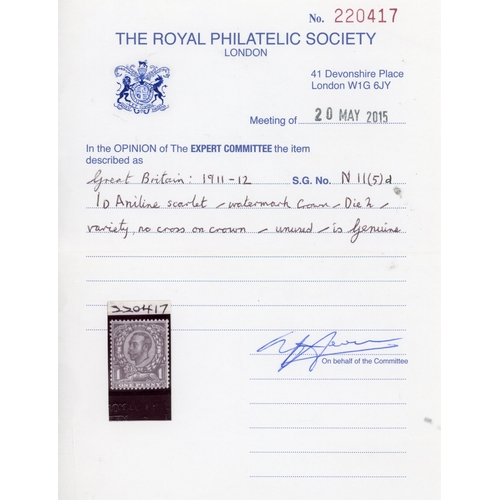 No. 220417
THE ROYAL PHILATELIC SOCIETY
LONDON
41 Devonshire Place
London W1G 6JY
Meeting of 20 MAY 2015
In the OPINION of The EXPERT COMMITTEE the item
described as
Great Britain: 1911-12 S.G. No. N11(5)d
1D Aniline scarlet - watermark Crown - Die 2 -
variety, no cross on crown - unused - is Genuine
220417
1 1
ONE PENNY
On behalf of the Committee